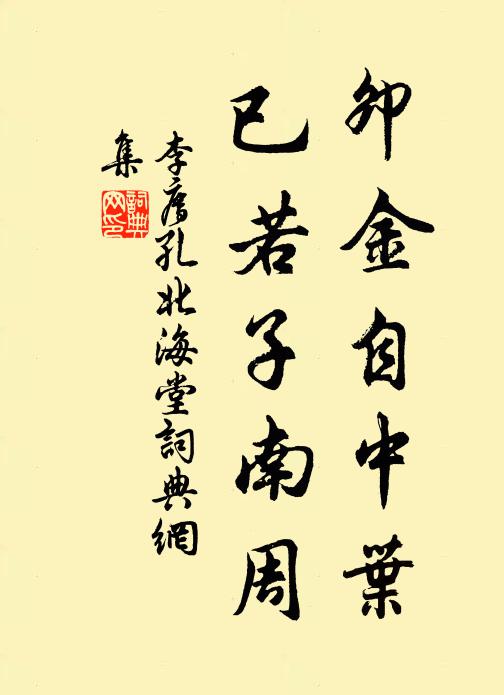 卯金自中葉
已若子南周
李廌孔北海堂詞典網
集
詞典网印